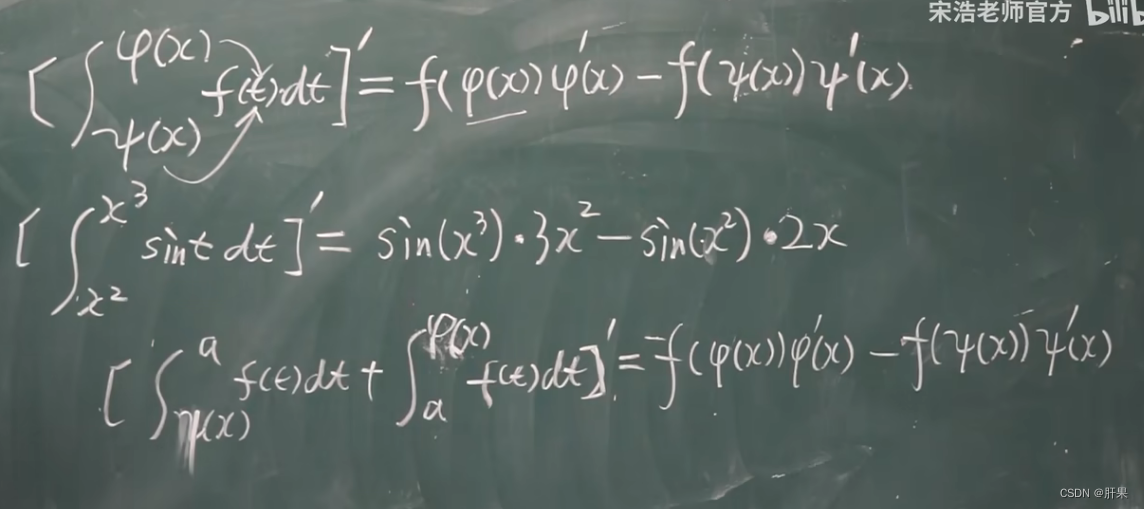 宋浩老师官方 bilib
[∫_{ψ(x)}^{φ(x)} f(t)·dt]' = f(φ(x))φ'(x) − f(ψ(x))ψ'(x).
[∫_{x²}^{x³} sint dt]' = sin(x³)·3x² − sin(x²)·2x
[∫_{ψ(x)}^{a} f(t)dt + ∫_{a}^{φ(x)} f(t)dt]' = f(φ(x))φ'(x) − f(ψ(x))ψ'(x)
CSDN @肝果